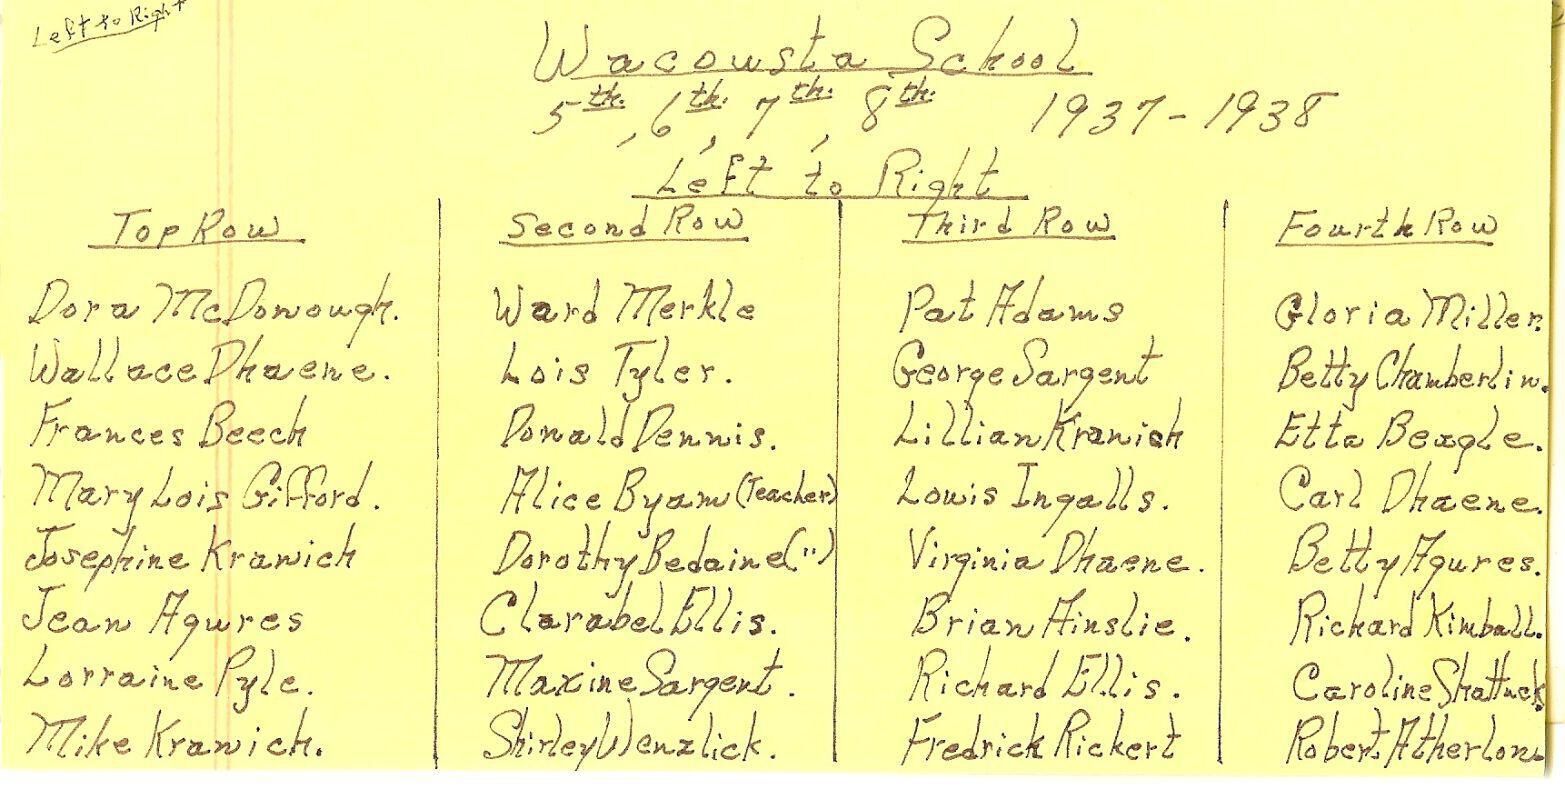 Left to Right
Wacousta School
5th, 6th, 7th, 8th 1937-1938
Left to Right
Top Row
Dora McDonough.
Wallace Dhaene.
Frances Beech
Mary Lois Gifford.
Josephine Kranich
Jean Agures
Lorraine Pyle.
Mike Kranich.
Second Row
Ward Merkle
Lois Tyler.
Donald Dennis.
Alice Byam (Teacher)
Dorothy Bedaine (")
Clarabel Ellis.
Maxine Sargent.
Shirley Wenzlick.
Third Row
Pat Adams
George Sargent
Lillian Kranich
Louis Ingalls.
Virginia Dhaene.
Brian Ainslie.
Richard Ellis.
Fredrick Rickert
Fourth Row
Gloria Miller.
Betty Chamberlin.
Etta Beagle.
Carl Dhaene.
Betty Agures.
Richard Kimball.
Caroline Shattuck
Robert Atherton.